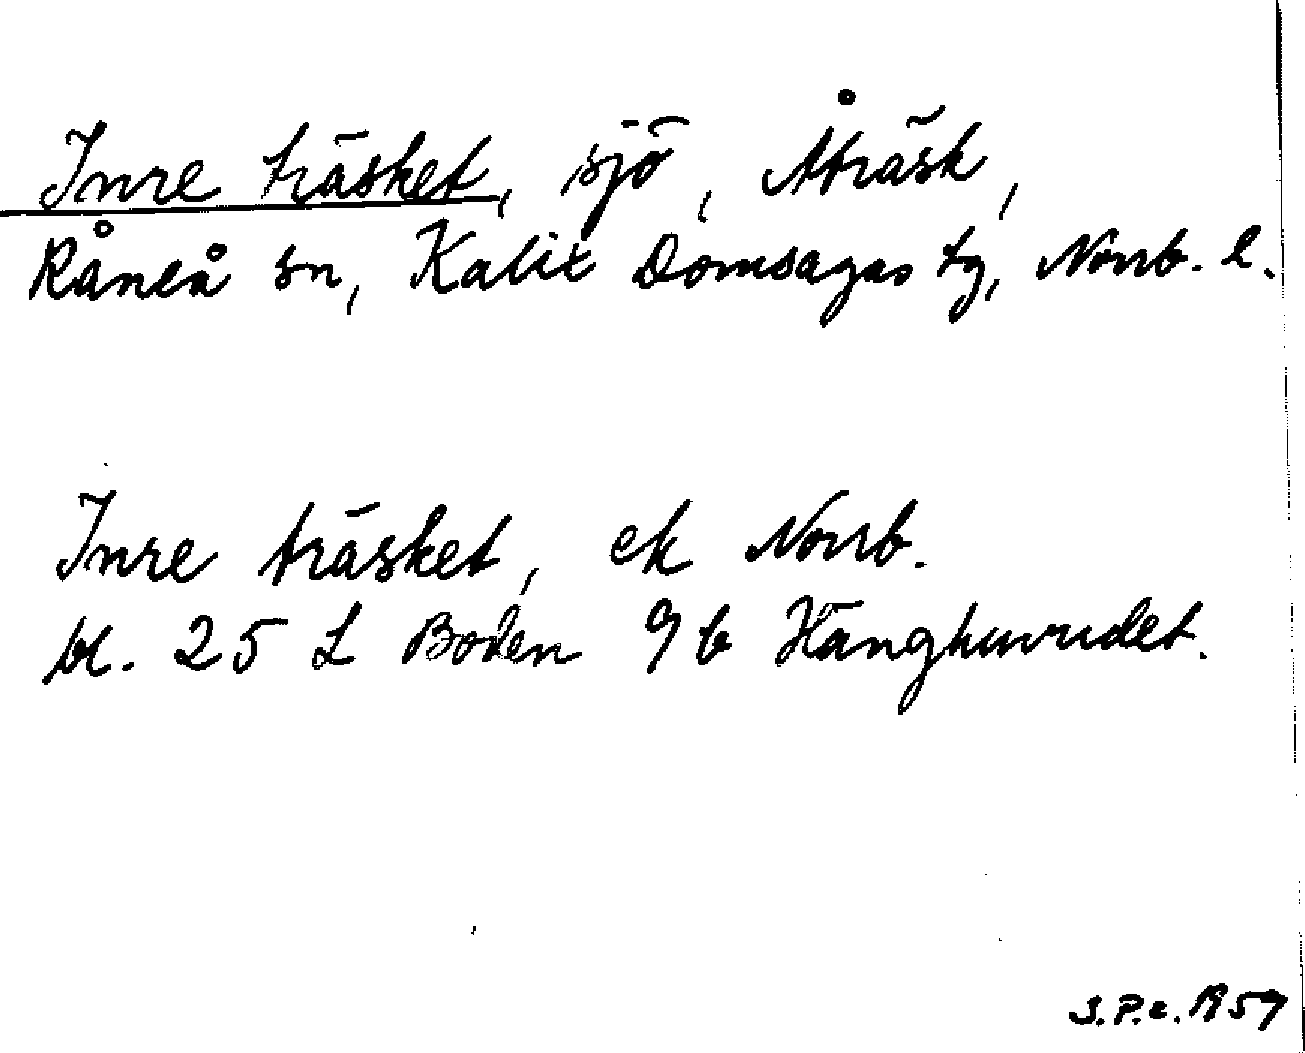 Inre träsket, sjö, Åträsk,
Råneå sn, Kalix Domsagas tg, Norrb. l.
Inre träsket, ek Norrb.
bl. 25 L Boden 9 b Hänghuvudet.
S.P.c. 1959